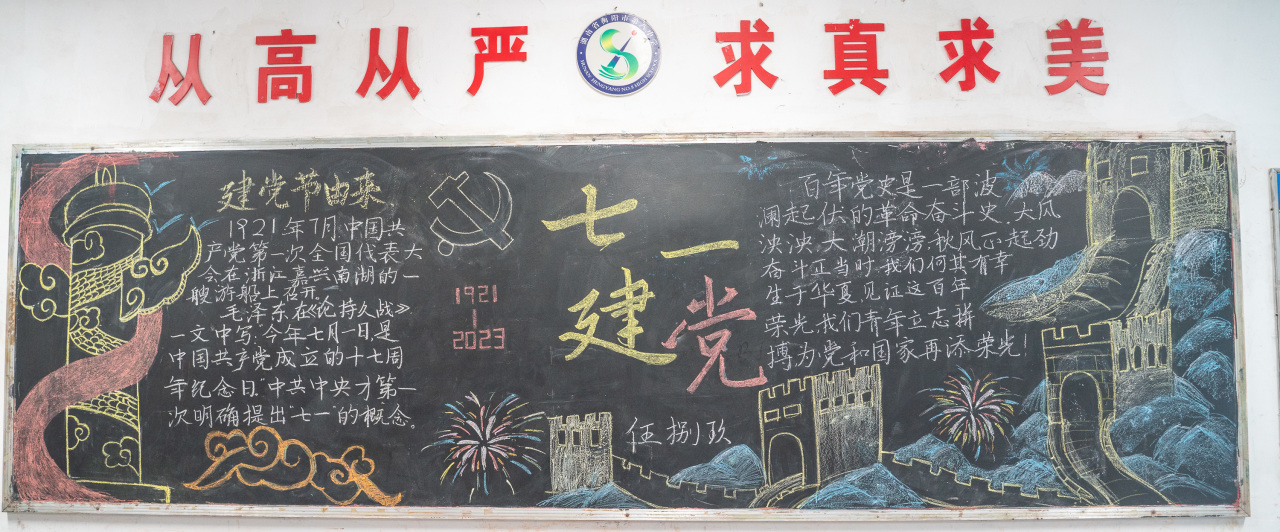 从高从严 求真求美
湖南省衡阳市第八中学
HUNAN HENGYANG NO.8 HIGH SCHOOL
建党节由来
1921年7月,中国共
产党第一次全国代表大
会在浙江嘉兴南湖的一
艘游船上召开。
毛泽东在《论持久战》
一文中写:“今年七月一日,是
中国共产党成立的十七周
年纪念日”中共中央才第一
次明确提出“七一”的概念。
1921
2023
七一
建党
伍捌玖
百年党史是一部波
澜起伏的革命奋斗史,大风
泱泱,大潮滂滂,秋风正起劲
奋斗正当时,我们何其有幸
生于华夏,见证这百年
荣光,我们青年立志拼
搏为党和国家再添荣光!